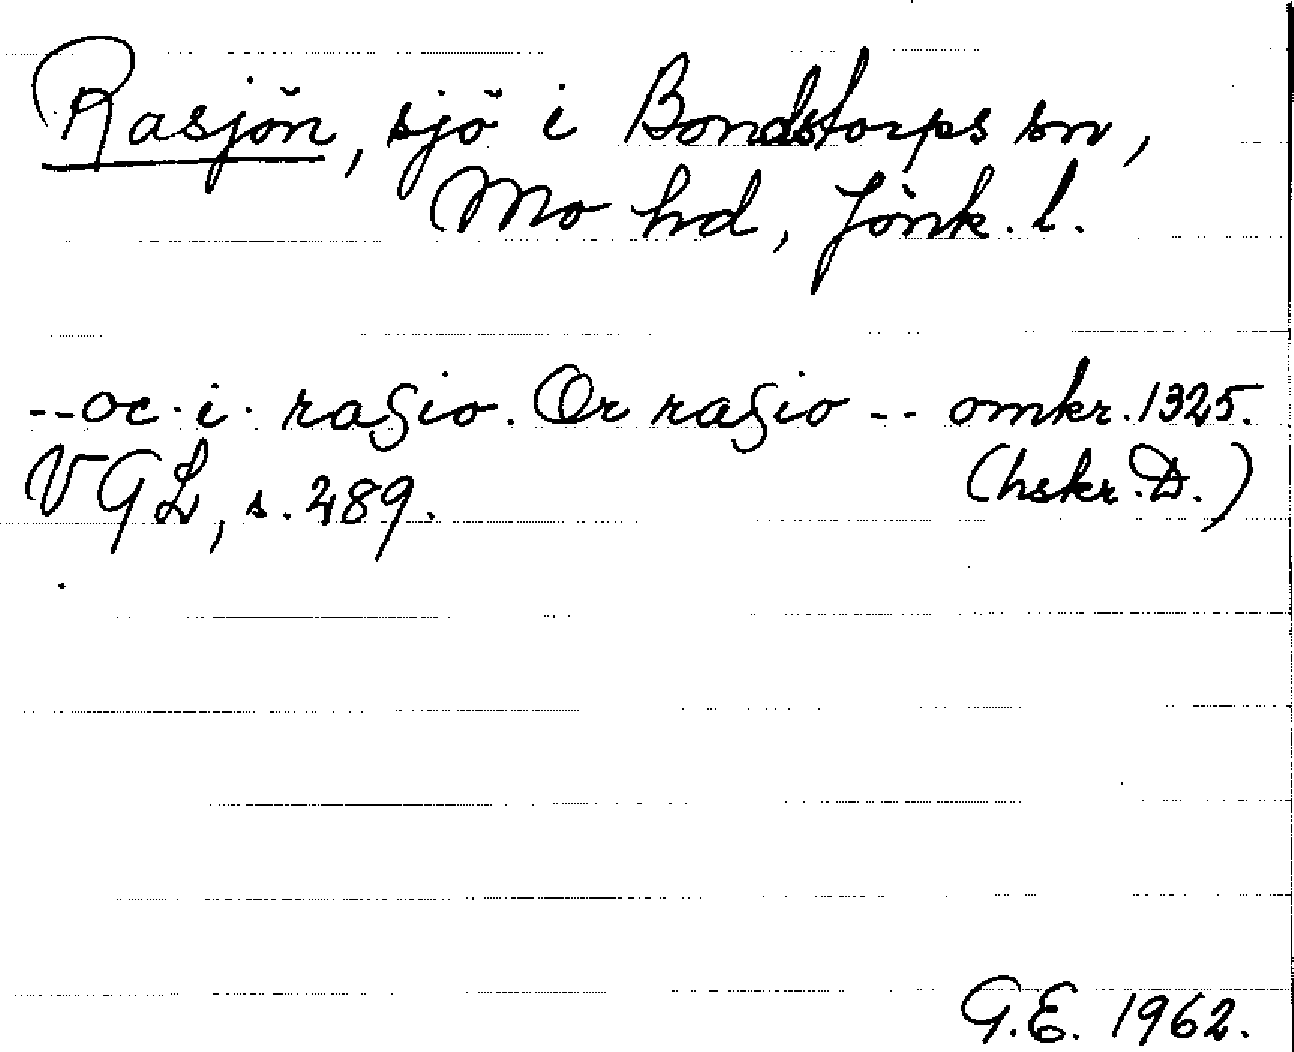 Rasjön, sjö i Bondstorps sn,
Mo hd, Jönk. l.
--oc · i · raσio. Or raσio -- omkr. 1325.
VGL, s. 289. (hskr. D.)
G.E. 1962.